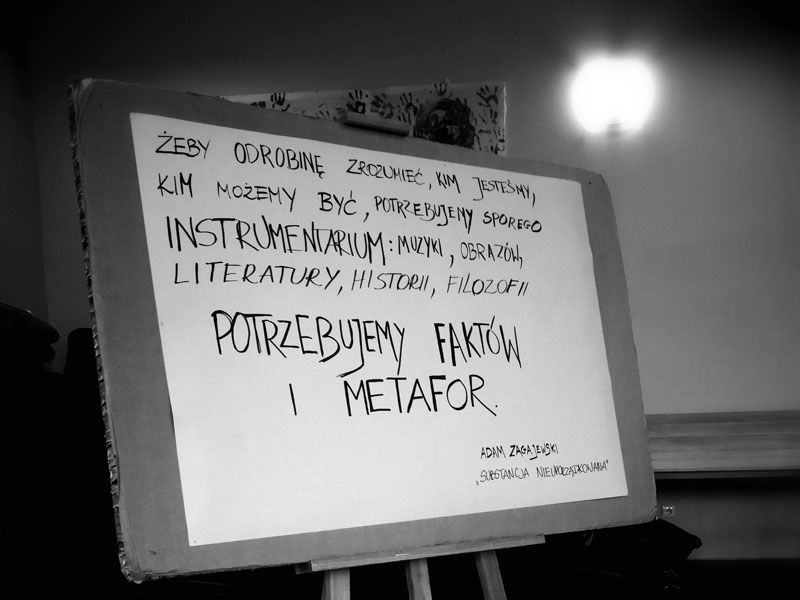 ŻEBY ODROBINĘ ZROZUMIEĆ, KIM JESTEŚMY,
KIM MOŻEMY BYĆ, POTRZEBUJEMY SPOREGO
INSTRUMENTARIUM: MUZYKI, OBRAZÓW,
LITERATURY, HISTORII, FILOZOFII.
POTRZEBUJEMY FAKTÓW
I METAFOR.
ADAM ZAGAJEWSKI
„SUBSTANCJA NIEUPORZĄDKOWANA"